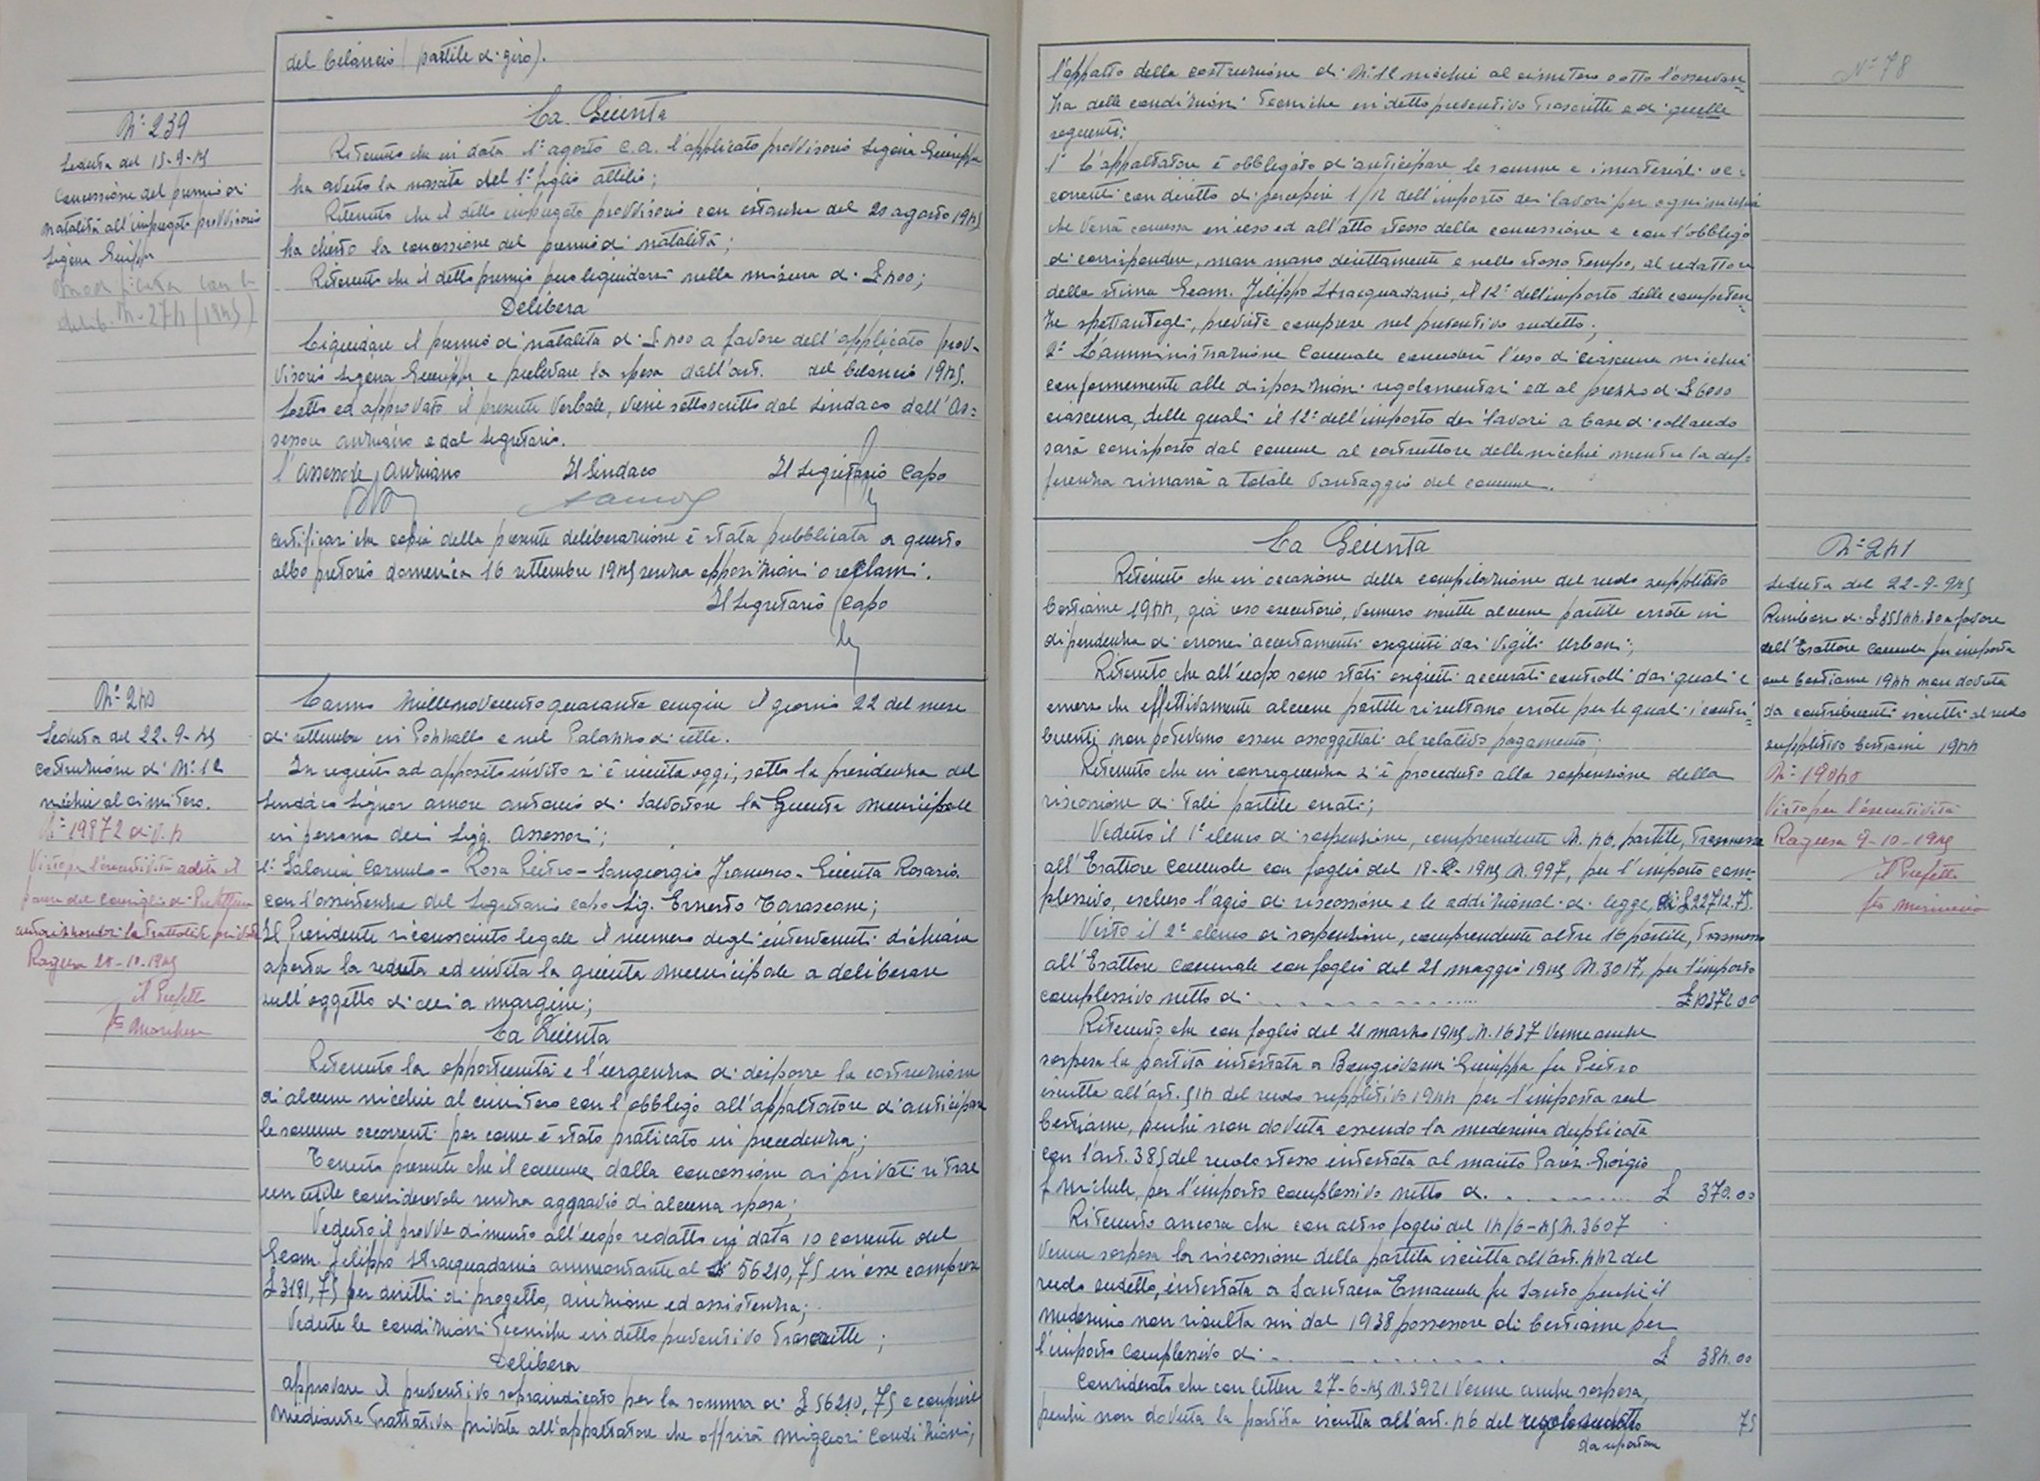 del bilancio (partite di giro).
N° 239
Seduta del 15-9-45
Concessione del premio di
natalità all'impiegato provvisorio
Ligena Giuseppe
Modificata con la
delib. N. 274 (1945)
La Giunta
Ritenuto che in data 1° agosto c.a. l'applicato provvisorio Ligena Giuseppe
ha avuto la nascita del 1° figlio Attilio;
Ritenuto che il detto impiegato provvisorio con istanza del 20 agosto 1945
ha chiesto la concessione del premio di natalità;
Ritenuto che il detto premio può liquidarsi nella misura di £ 400;
Delibera
Liquidare il premio di natalità di £ 400 a favore dell'applicato prov-
visorio Ligena Giuseppe e prelevare la spesa dall'art. del bilancio 1945.
Letto ed approvato il presente verbale, viene sottoscritto dal Sindaco dall'As=
sessore anziano e dal Segretario.
l'Assessore anziano Il Sindaco Il Segretario Capo
certificasi che copia della presente deliberazione è stata pubblicata a questo
albo pretorio domenica 16 settembre 1945 senza opposizioni o reclami.
Il Segretario Capo
N° 240
Seduta del 22-9-45
costruzione di N° 12
nicchie al cimitero.
N° 19872 div. 4
Visto per l'esecutività udito il
parere del Consiglio di Prefettura
autorizzandosi la trattativa privata
Ragusa 20-10-1945
il Prefetto
L'anno millenovecentoquarantacinque il giorno 22 del mese
di settembre in Pozzallo e nel Palazzo di città.
In seguito ad apposito invito s'è riunita oggi, sotto la presidenza del
Sindaco Signor Amore Antonio di Salvatore la Giunta Municipale
in persona dei Sigg. Assessori;
Salonia Carmelo - Rosa Pietro - Sangiorgio Francesco - Giunta Rosario
con l'assistenza del Segretario capo Sig. Ernesto Tarascone;
Il Presidente riconosciuto legale il numero degli intervenuti dichiara
aperta la seduta ed invita la giunta municipale a deliberare
sull'oggetto di cui a margine;
La Giunta
Ritenuto la opportunità e l'urgenza di disporre la costruzione
di alcune nicchie al cimitero con l'obbligo all'appaltatore d'anticipare
le somme occorrenti per come è stato praticato in precedenza;
Tenuto presente che il comune dalla concessione ai privati ritrae
un utile considerevole senza aggravio di alcuna spesa;
Veduto il provvedimento all'uopo redatto in data 10 corrente del
Geom. Filippo Stracquadanio ammontante a £ 56210,75 in esse comprese
£ 3181,75 per diritti di progetto, direzione ed assistenza;
Vedute le condizioni tecniche in detto preventivo trascritte;
Delibera
approvare il preventivo sopraindicato per la somma di £ 56210,75 e conferire
mediante trattativa privata all'appaltatore che offrirà migliori condizioni,
N° 78
l'appalto della costruzione di N° 12 nicchie al cimitero sotto l'osservan=
za delle condizioni tecniche in detto preventivo trascritte e di quelle
seguenti:
1° L'appaltatore è obbligato di anticipare le somme e i materiali oc=
correnti con diritto di percepire 1/12 dell'importo dei lavori per ogni nicchia
che verrà concessa in uso ed all'atto stesso della concessione e con l'obbligo
di corrispondere, man mano direttamente e nello stesso tempo, al redattore
della stima Geom. Filippo Stracquadanio, il 12° dell'importo delle competen=
ze spettantegli, previste comprese nel preventivo sudetto;
2° L'amministrazione Comunale concederà l'uso di ciascuna nicchia
conformemente alle disposizioni regolamentari ed al prezzo di £ 6000
ciascuna, delle quali il 12° dell'importo dei lavori a base di collaudo
sarà corrisposto dal comune al costruttore delle nicchie mentre la dif=
ferenza rimarrà a totale vantaggio del comune.
La Giunta
Ritenuto che in occasione della compilazione del ruolo suppletivo
bestiame 1944, già reso esecutorio, vennero iscritte alcune partite errate in
dipendenza di erronei accertamenti eseguiti dai Vigili Urbani;
Ritenuto che all'uopo sono stati eseguiti accurati controlli dai quali è
emerso che effettivamente alcune partite risultano errate per le quali i contri=
buenti non potevano essere assoggettati al relativo pagamento;
Ritenuto che in conseguenza s'è proceduto alla sospensione della
riscossione di tali partite errate;
Veduto il 1° elenco di sospensione, comprendente N. 40 partite, trasmesso
all'Esattore Comunale con foglio del 18-2-1945 N. 997, per l'importo com-
plessivo, escluso l'agio di riscossione e le addizionali di legge, di £ 22712.75.
Visto il 2° elenco di sospensione, comprendente altre 16 partite, trasmesso
all'Esattore Comunale con foglio del 21 maggio 1945 N. 3017, per l'importo
complessivo netto di £ 10372.00
Ritenuto che con foglio del 21 marzo 1945 N. 1637 venne anche
sospesa la partita intestata a Bongiovanni Giuseppa fu Pietro
iscritta all'art. 514 del ruolo suppletivo 1944 per l'imposta sul
bestiame, perchè non dovuta essendo la medesima duplicata
con l'art. 385 del ruolo stesso intestata al marito Giorgio
f. Michele, per l'importo complessivo netto di £ 370.00
Ritenuto ancora che con altro foglio del 14/6-45 N. 3607
venne sospesa la riscossione della partita iscritta all'art. 442 del
ruolo sudetto, intestata a Santaera Emanuele fu Santo perchè il
medesimo non risulta sin dal 1938 possessore di bestiame per
l'importo complessivo di £ 384.00
Considerato che con lettera 27-6-45 N. 3921 venne anche sospesa,
perchè non dovuta la partita iscritta all'art. 46 del ruolo sudetto 75
da riportare
N° 241
Seduta del 22-9-945
Rimborso di £ 35544.50 a favore
dell'Esattore Comunale per imposta
sul bestiame 1944 non dovuta
da contribuenti iscritti al ruolo
suppletivo bestiame 1944
N° 19040
Visto per l'esecutività
Ragusa 9-10-1945
Il Prefetto